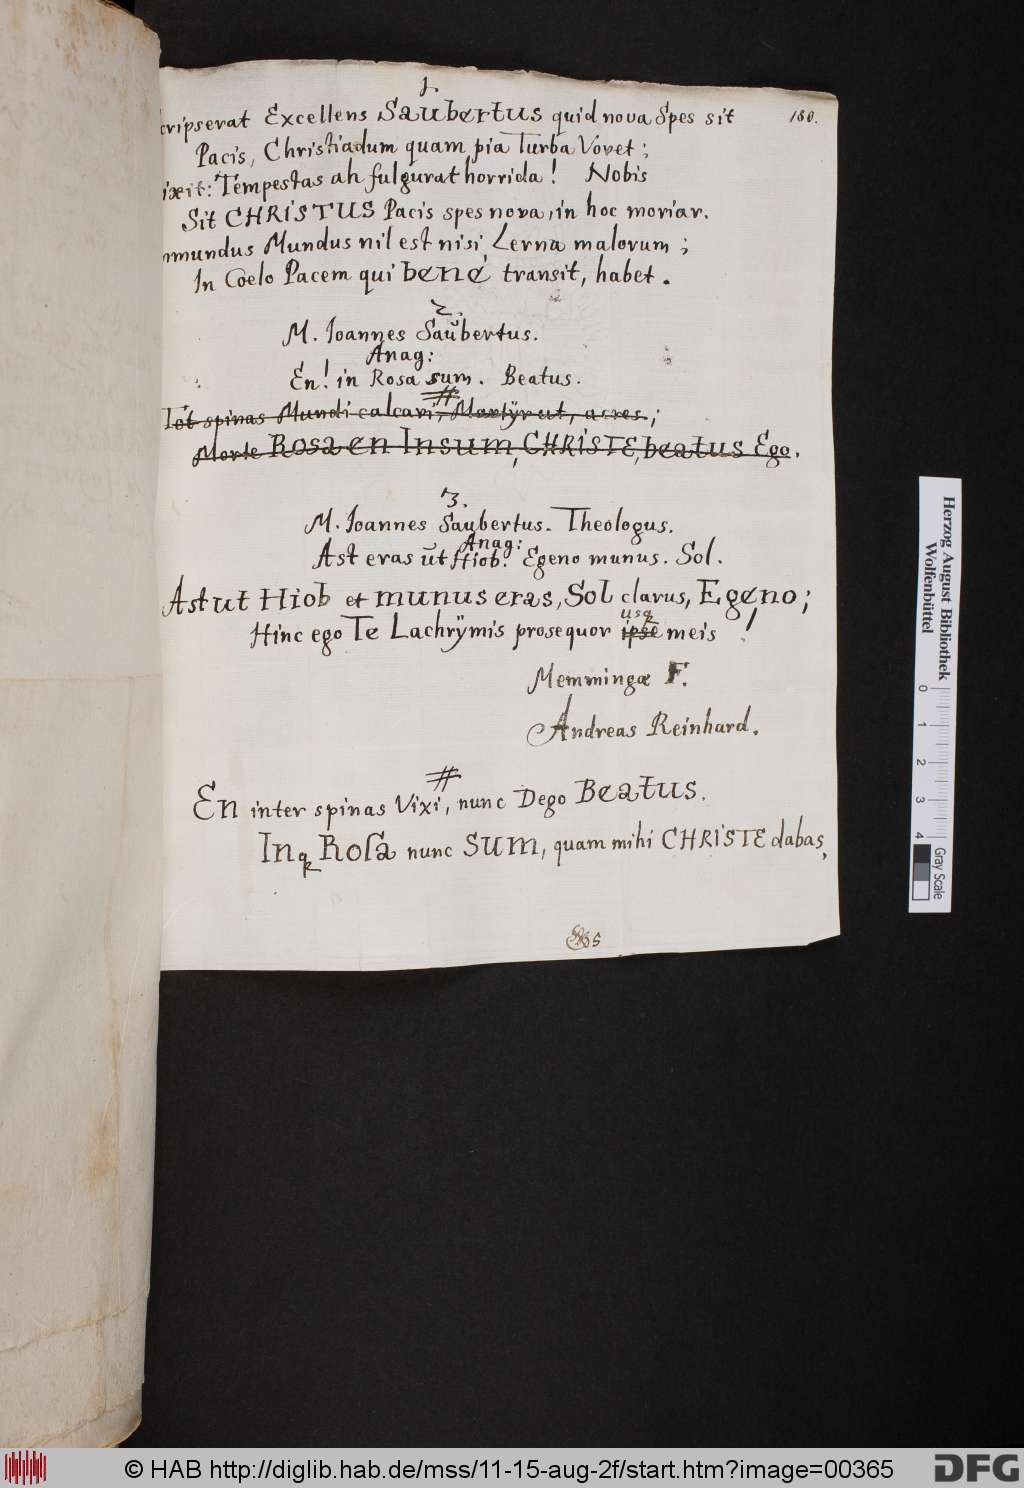 1.
cripserat Excellens Saubertus quid nova Spes sit
180.
Pacis, Christiadum quam pia Turba Vovet;
ixit: Tempestas ah fulgurat horrida! Nobis
Sit CHRISTUS Pacis spes nova, in hoc moriar.
mmundus Mundus nil est nisi Lerna malorum;
In Coelo Pacem qui bene transit, habet.
2.
M. Ioannes Saŭbertus.
Anag:
En! in Rosa sum. Beatus.
Tot spinas Mundi calcavi, Martÿr ut, acres;
Morte Rosa en Insum, CHRISTE, beatus Ego.
3.
M. Ioannes Saubertus. Theologus.
Anag:
Ast eras ŭt Hiob! Egeno munus. Sol.
Ast ut Hiob et munus eras, Sol clarus, Egeno;
usq
Hinc ego Te Lachrÿmis prosequor ipse meis!
Memmingæ F.
Andreas Reinhard.
#
En inter spinas Vixi, nunc Dego Beatus.
Inq Rosa nunc SUM, quam mihi CHRISTE dabas,
Herzog August Bibliothek
Wolfenbüttel
0 1 2 3 4
Gray Scale
© HAB http://diglib.hab.de/mss/11-15-aug-2f/start.htm?image=00365
DFG